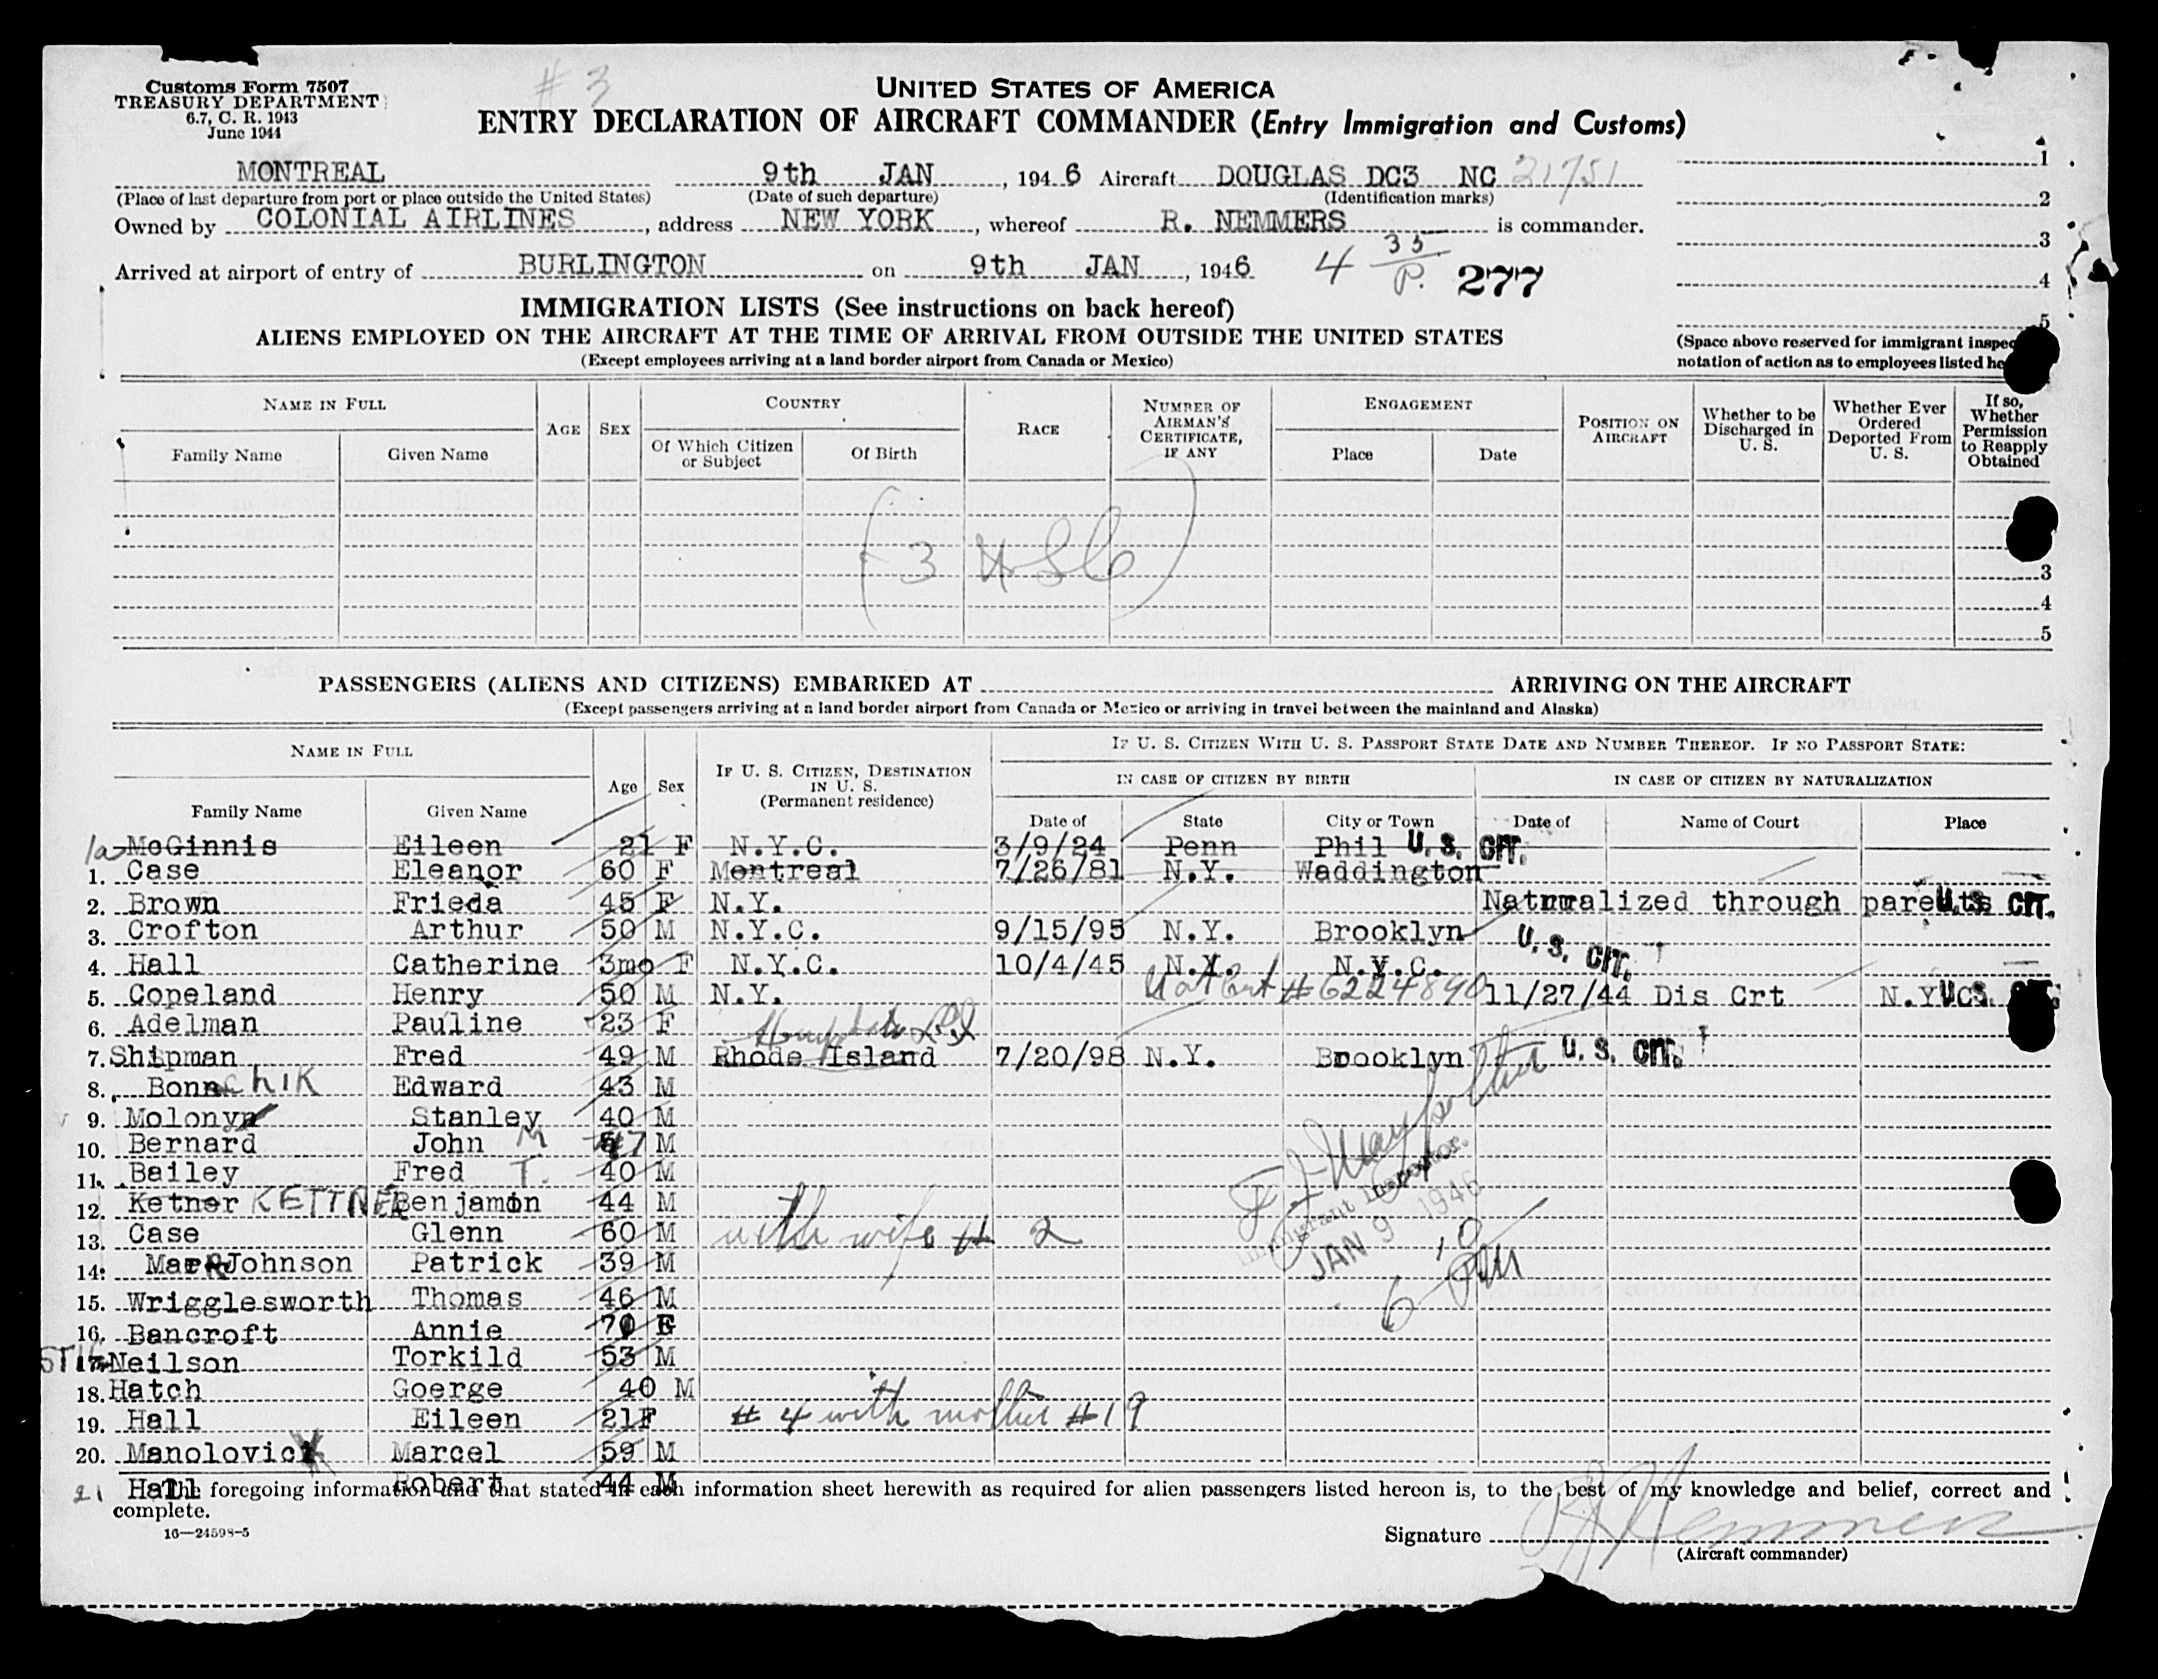 Customs Form 7507
TREASURY DEPARTMENT
6.7, C. R. 1943
June 1944
# 3
UNITED STATES OF AMERICA
ENTRY DECLARATION OF AIRCRAFT COMMANDER (Entry Immigration and Customs)
MONTREAL 9th JAN, 1946 Aircraft DOUGLAS DC3 NC 21751
(Place of last departure from port or place outside the United States) (Date of such departure) (Identification marks)
Owned by COLONIAL AIRLINES, address NEW YORK, whereof R. NEMMERS is commander.
Arrived at airport of entry of BURLINGTON on 9th JAN, 1946 4 35 P. 277
1
2
3
4
5
IMMIGRATION LISTS (See instructions on back hereof)
ALIENS EMPLOYED ON THE AIRCRAFT AT THE TIME OF ARRIVAL FROM OUTSIDE THE UNITED STATES
(Except employees arriving at a land border airport from Canada or Mexico)
(Space above reserved for immigrant
notation of action as to employees listed
NAME IN FULL AGE SEX COUNTRY RACE NUMBER OF AIRMAN'S CERTIFICATE, IF ANY ENGAGEMENT POSITION ON AIRCRAFT Whether to be Discharged in U. S. Whether Ever Ordered Deported From U. S. If so, Whether Permission to Reapply Obtained
Family Name Given Name Of Which Citizen or Subject Of Birth Place Date
(3 USC)
3
4
5
PASSENGERS (ALIENS AND CITIZENS) EMBARKED AT ARRIVING ON THE AIRCRAFT
(Except passengers arriving at a land border airport from Canada or Mexico or arriving in travel between the mainland and Alaska)
NAME IN FULL Age Sex IF U. S. CITIZEN, DESTINATION IN U. S. (Permanent residence) IF U. S. CITIZEN WITH U. S. PASSPORT STATE DATE AND NUMBER THEREOF. IF NO PASSPORT STATE:
IN CASE OF CITIZEN BY BIRTH IN CASE OF CITIZEN BY NATURALIZATION
Family Name Given Name Date of State City or Town Date of Name of Court Place
1a McGinnis Eileen 21 F N.Y.C. 3/9/24 Penn Phil U. S. CIT.
1. Case Eleanor 60 F Montreal 7/26/81 N.Y. Waddington
2. Brown Frieda 45 F N.Y. Naturalized through parents U.S. CIT.
3. Crofton Arthur 50 M N.Y.C. 9/15/95 N.Y. Brooklyn U. S. CIT.
4. Hall Catherine 3mo F N.Y.C. 10/4/45 N.Y. N.Y.C.
5. Copeland Henry 50 M N.Y. Nat Cert #6224890 11/27/44 Dis Crt N.Y.C. U.S. CIT.
6. Adelman Pauline 23 F
7. Shipman Fred 49 M Rhode Island 7/20/98 N.Y. Brooklyn U. S. CIT.
8. Bonnchik Edward 43 M
9. Molony Stanley 40 M
10. Bernard John M 47 M
11. Bailey Fred T. 40 M
12. Ketner KETTNER Benjamin 44 M
13. Case Glenn 60 M with wife # 2
14. MarrJohnson Patrick 39 M
15. Wrigglesworth Thomas 46 M
16. Bancroft Annie 70 F
17. Neilson Torkild 53 M
18. Hatch Goerge 40 M
19. Hall Eileen 21 F # 4 with mother #19
20. Manolovici Marcel 59 M
21 Hall Robert 44 M
Immigrant Inspector.
JAN 9 1946
6 10 PM
The foregoing information and that stated in each information sheet herewith as required for alien passengers listed hereon is, to the best of my knowledge and belief, correct and
complete.
16—24598-5
Signature R Nemmers
(Aircraft commander)